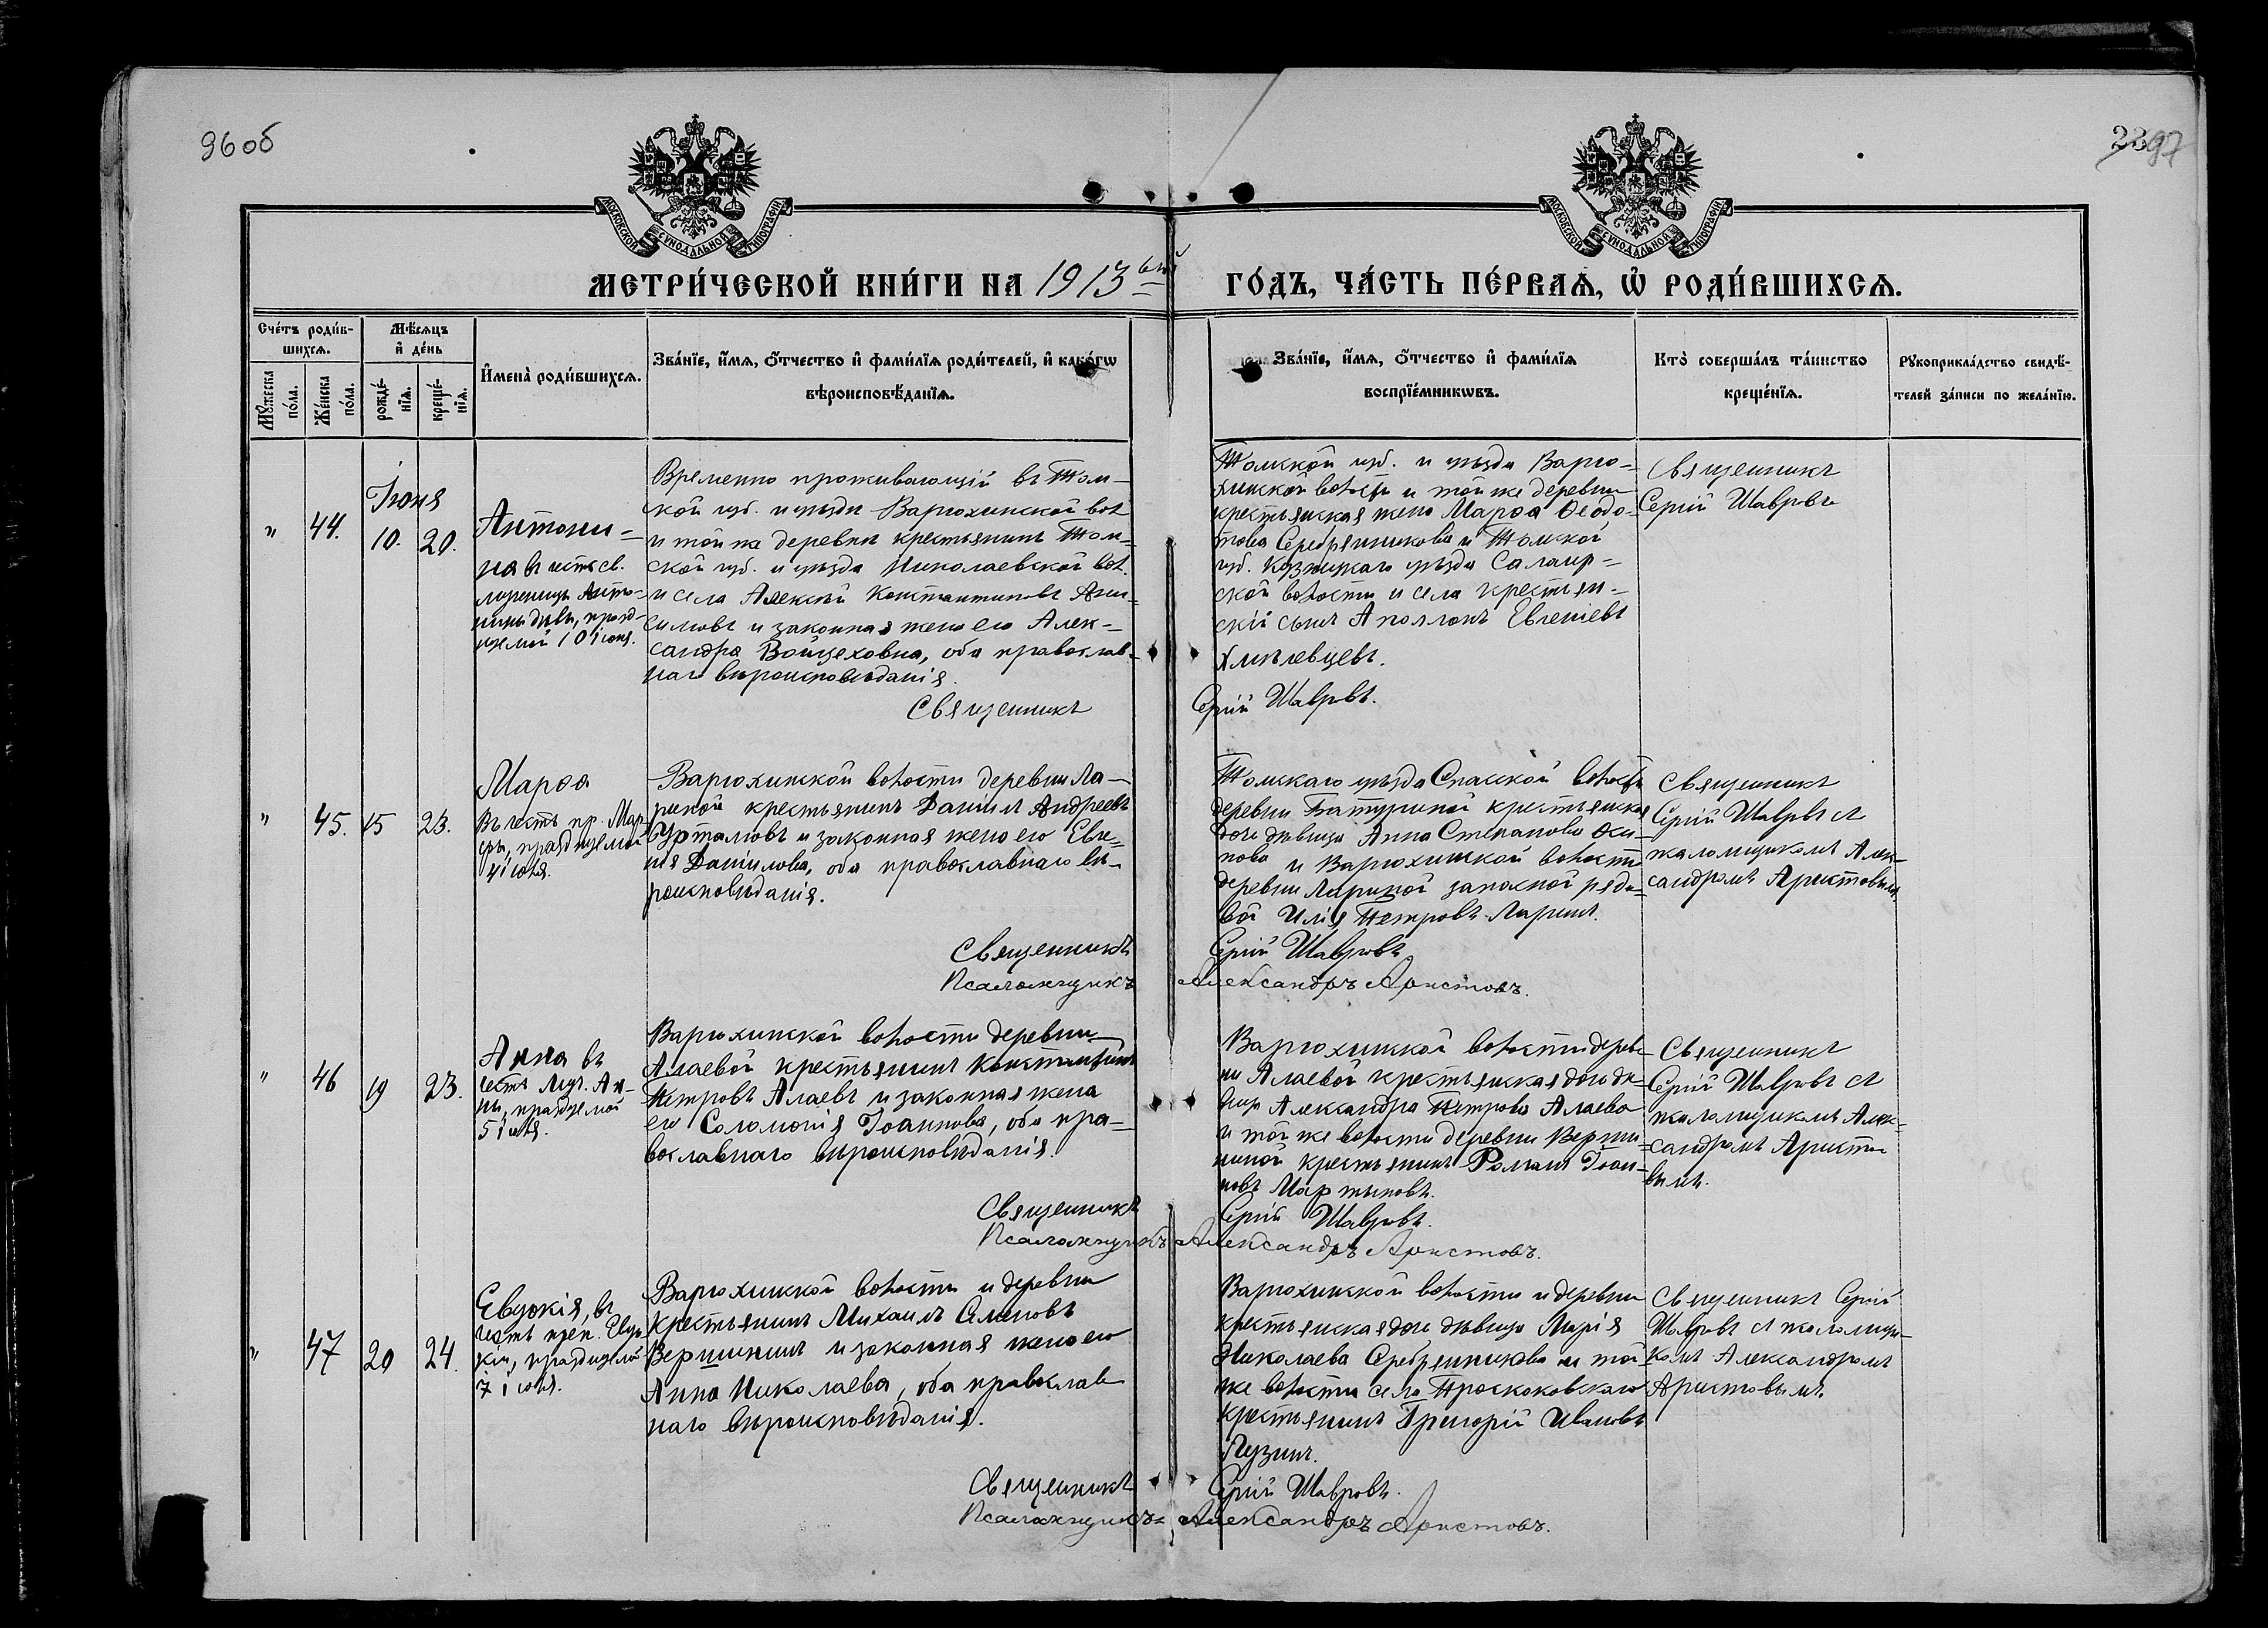 96об
23 97
МОСКОВСКОЙ СѴНОДАЛЬНОЙ ТИПОГРАФІИ
МОСКОВСКОЙ СѴНОДАЛЬНОЙ ТИПОГРАФІИ
МЕТРИ́ЧЕСКОЙ КНИ́ГИ НА 1913 ый ГО́ДЪ, ЧА́СТЬ ПЕ́РВАѦ, Ѡ҆ РОДИ́ВШИХСѦ.
Сче́тъ роди́в-
шихсѧ.
Мꙋ́жеска по́ла.
Же́нска по́ла.
Мѣ́сѧцъ
и҆ де́нь
рожде́-
нїѧ.
креще́-
нїѧ.
И҆мена̀ роди́вшихсѧ.
Зва́нїе, и҆́мѧ, ѻ҆́тчество и҆ фами́лїѧ роди́телей, и҆ како́гѡ
вѣроисповѣ́данїѧ.
Зва́нїе, и҆́мѧ, ѻ҆́тчество и҆ фами́лїѧ
воспрїе́мникѡвъ.
Кто̀ соверша́лъ та́инство
креще́нїѧ.
Рꙋкоприкла́дство свидѣ́-
телей за́писи по жела́нїю.
"
44.
Іюня
10.
20.
Антони-
на въ честь св.
мученицы Анто-
нины дѣвы, празд-
нуемой 10 іюня.
Временно проживающій въ Том-
ской губ. и уѣзда Варюхинской вол.
и той же деревни крестьянинъ Том-
ской губ. и уѣзда Николаевской вол.
и села Алексѣй Константиновъ Ани-
симовъ и законная жена его Алек-
сандра Войцеховна, оба православ-
наго вѣроисповѣданія.
Священникъ
Томской губ. и уѣзда Варю-
хинской волости и той же деревни
крестьянская жена Марѳа Ѳеодо-
това Серебренникова и Томской
губ. Кузнецкаго уѣзда Салаир-
ской волости и села крестьян-
скій сынъ Аполлонъ Евгеніевъ
Хмѣлевцевъ.
Сергій Шавровъ.
Священникъ
Сергій Шавровъ
"
45.
15
23.
Марѳа
Въ честь пр. Мар-
ѳы, празднуемой
4 іюля.
Варюхинской волости деревни Ла-
риной крестьянинъ Даніилъ Андреевъ
Урталовъ и законная жена его Евге-
нія Данілова, оба православнаго вѣ-
роисповѣданія.
Священникъ
Псаломщикъ
Томскаго уѣзда Спасской волости
деревни Батуриной крестьянская
дочь дѣвица Анна Степанова Оси-
пова и Варюхинской волости
деревни Лариной запасной рядо-
вой Илія Петровъ Ларинъ.
Сергій Шавровъ
Александръ Аристовъ.
Священникъ
Сергій Шавровъ съ
псаломщикомъ Алек-
сандромъ Аристовымъ.
"
46
19
23.
Анна въ
честь муч. Ан-
ны, празднуемой
5 іюля.
Варюхинской волости деревни
Алаевой крестьянинъ Константинъ
Петровъ Алаевъ и законная жена
его Соломонія Іоаннова, оба пра-
вославнаго вѣроисповѣданія.
Священникъ
Псаломщикъ
Варюхинской волости дерев-
ни Алаевой крестьянская дочь дѣ-
вица Александра Петрова Алаева
и той же волости деревни Верши-
ниной крестьянинъ Романъ Іоан-
новъ Мартыновъ.
Сергій Шавровъ.
Александръ Аристовъ.
Священникъ
Сергій Шавровъ съ
псаломщикомъ Алек-
сандромъ Аристо-
вымъ.
"
47
20
24.
Евдокія, въ
честь преп. Евдо-
кіи, празднуемой
7 іюля.
Варюхинской волости и деревни
крестьянинъ Михаилъ Семеновъ
Вершининъ и законная жена его
Анна Николаева, оба православ-
наго вѣроисповѣданія.
Священникъ
Псаломщикъ
Варюхинской волости и деревни
крестьянская дочь дѣвица Марія
Николаева Серебренникова и той
же волости села Проскоковскаго
крестьянинъ Григорій Ивановъ
Пузинъ.
Сергій Шавровъ.
Александръ Аристовъ.
Священникъ Сергій
Шавровъ съ псаломщи-
комъ Александромъ
Аристовымъ.